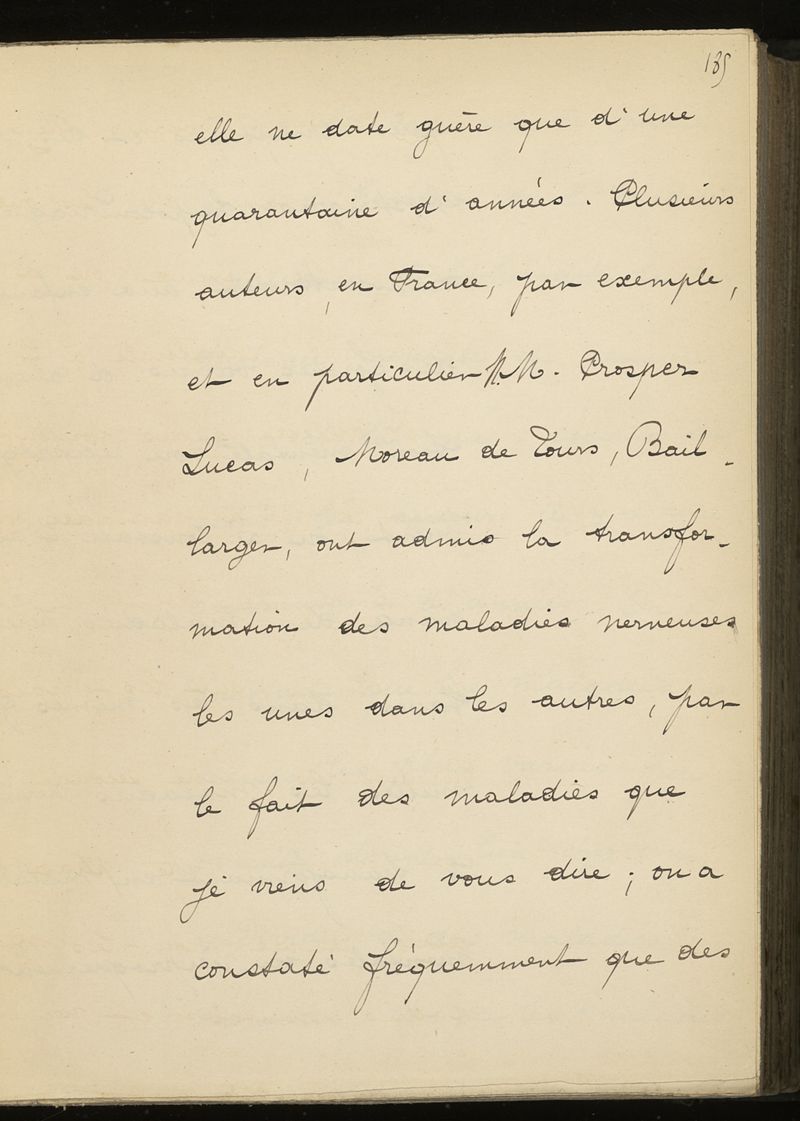 135
elle ne date guère que d'une
quarantaine d'années. Plusieurs
auteurs, en France, par exemple,
et en particulier MM. Prosper
Lucas, Moreau de Tours, Bail-
larger, ont admis la transfor-
mation des maladies nerveuses
les unes dans les autres, par
le fait des maladies que
je viens de vous dire ; on a
constaté fréquemment que des